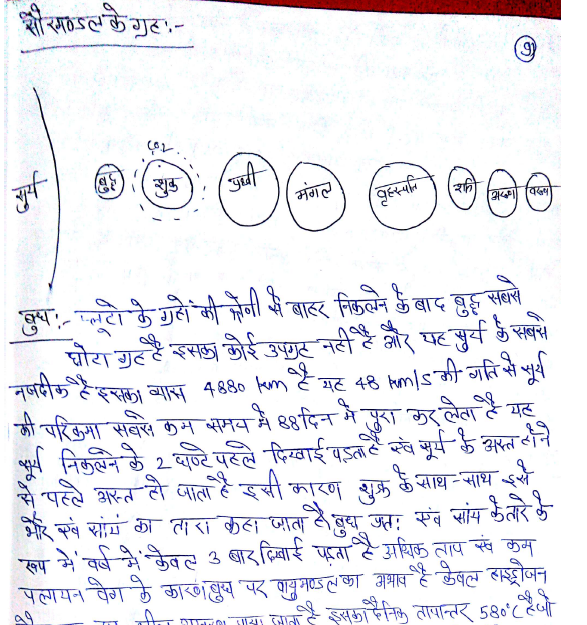 सौरमण्डल के ग्रह:-
9
CO2
सूर्य
बुद्ध
शुक्र
पृथ्वी
मंगल
वृहस्पति
शनि
अरुण
वरुण
बुध:- प्लूटो के ग्रहों की श्रेणी से बाहर निकलने के बाद बुद्ध सबसे
छोटा ग्रह है इसका कोई उपग्रह नहीं है और यह सूर्य के सबसे
नजदीक है इसका व्यास 4880 km है यह 48 km/s की गति से सूर्य
की परिक्रमा सबसे कम समय में 88 दिन में पुरा कर लेता है यह
सूर्य निकलने के 2 घण्टे पहले दिखाई पड़ता है एवं सूर्य के अस्त होने
से पहले अस्त हो जाता है इसी कारण शुक्र के साथ-साथ इसे
भोर एवं सांय का तारा कहा जाता है बुध प्रात: एवं सांय के तारे के
रूप में वर्ष में केवल 3 बार दिखाई पड़ता है अधिक ताप एवं कम
पलायन वेग के कारण बुध पर वायुमण्डल का अभाव है केवल हाइड्रोजन
पाया जाता है इसका दैनिक तापान्तर 580°C है जो